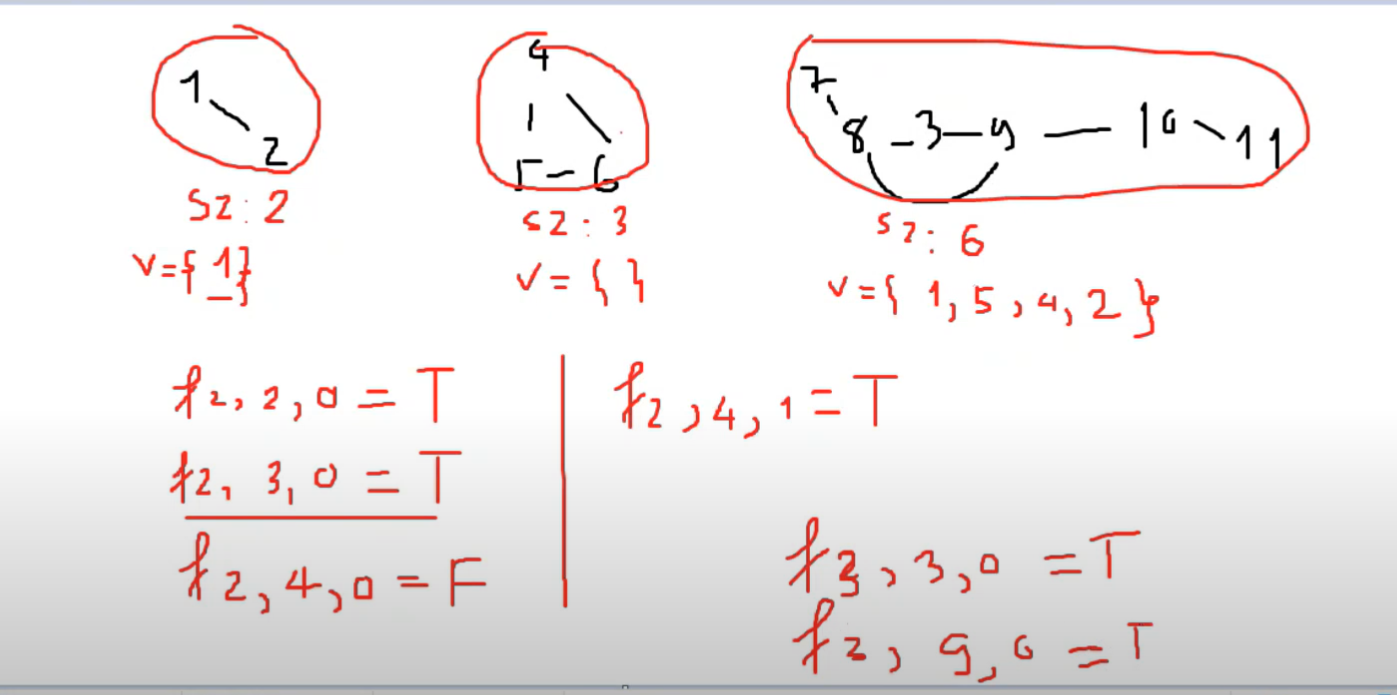 1
2
sz: 2
v={1}
4
5 - 6
sz: 3
v={ }
7
8 - 3 - 9 - 10 - 11
sz: 6
v={ 1, 5, 4, 2 }
f2, 2, 0 = T
f2, 3, 0 = T
f2, 4, 0 = F
f2, 4, 1 = T
f3, 3, 0 = T
f2, 9, 0 = T